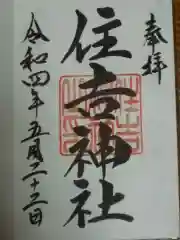 奉拝
住吉神社
令和四年五月二十三日